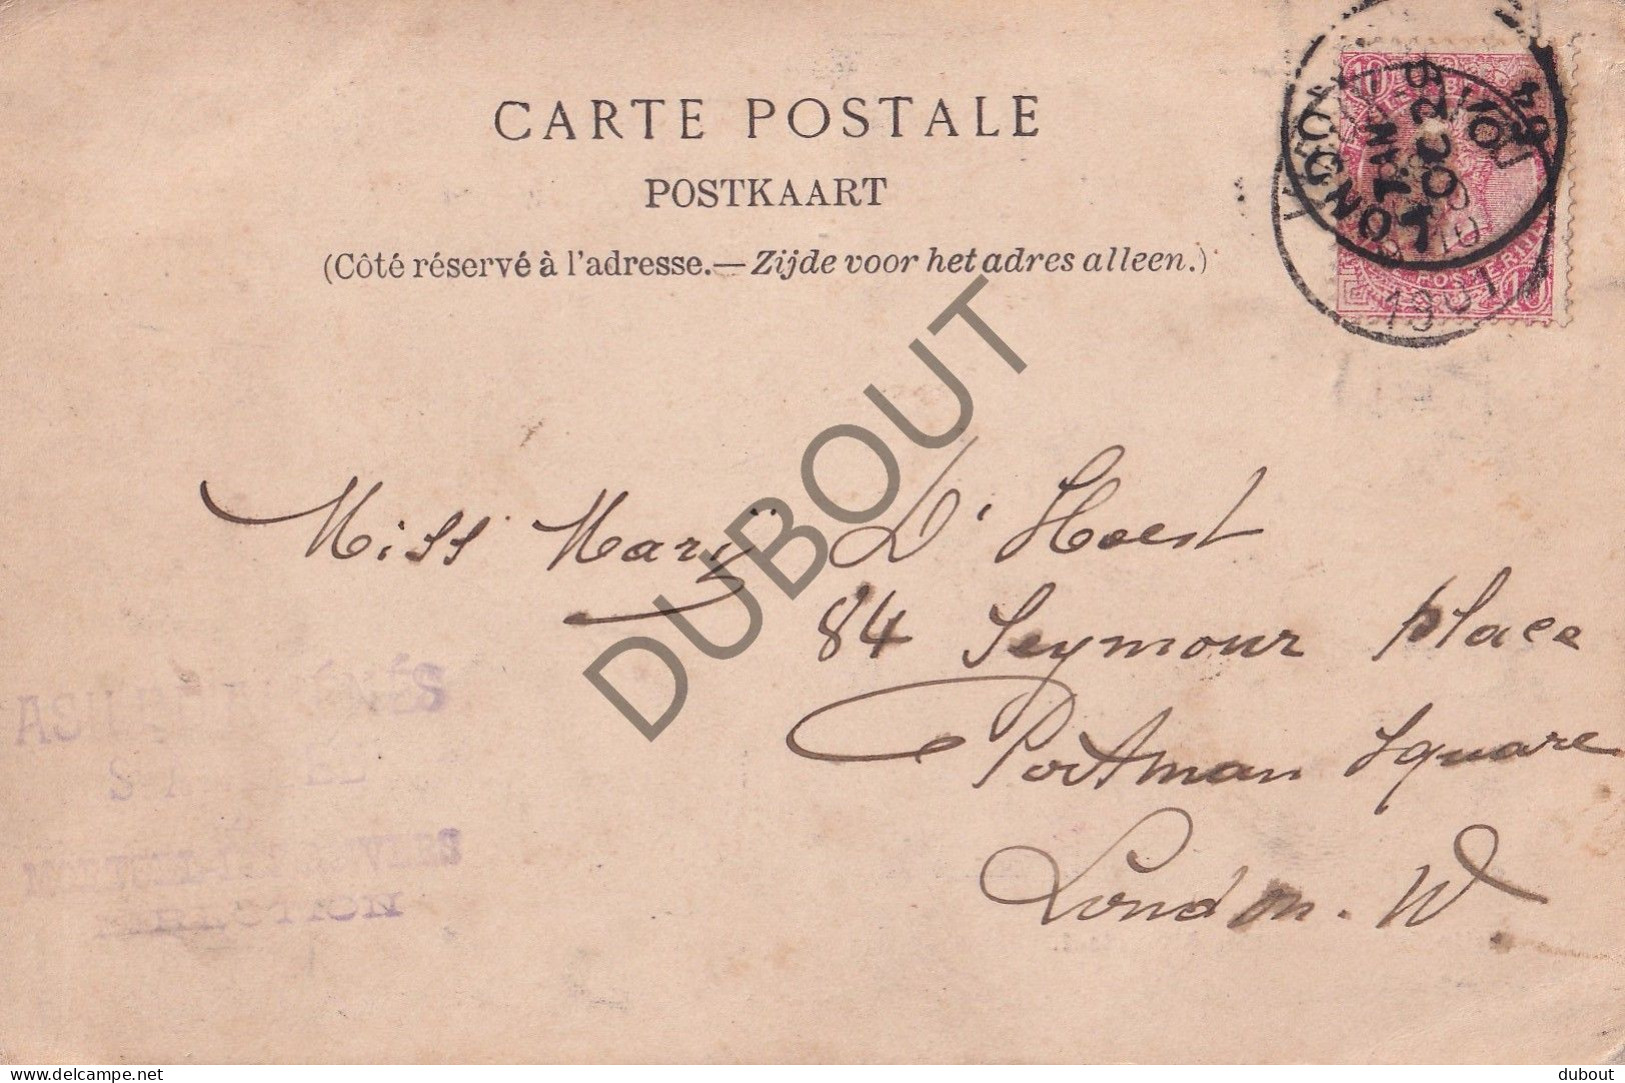 CARTE POSTALE
POSTKAART
(Côté réservé à l'adresse.—Zijde voor het adres alleen.)
LONDON
OC 29
01
94
1901
10
10
DUBOUT
Miss Marÿ D'Hoest
84 Seymour place
Portman Square
London. W.
S A
http://www.delcampe.net
dubout